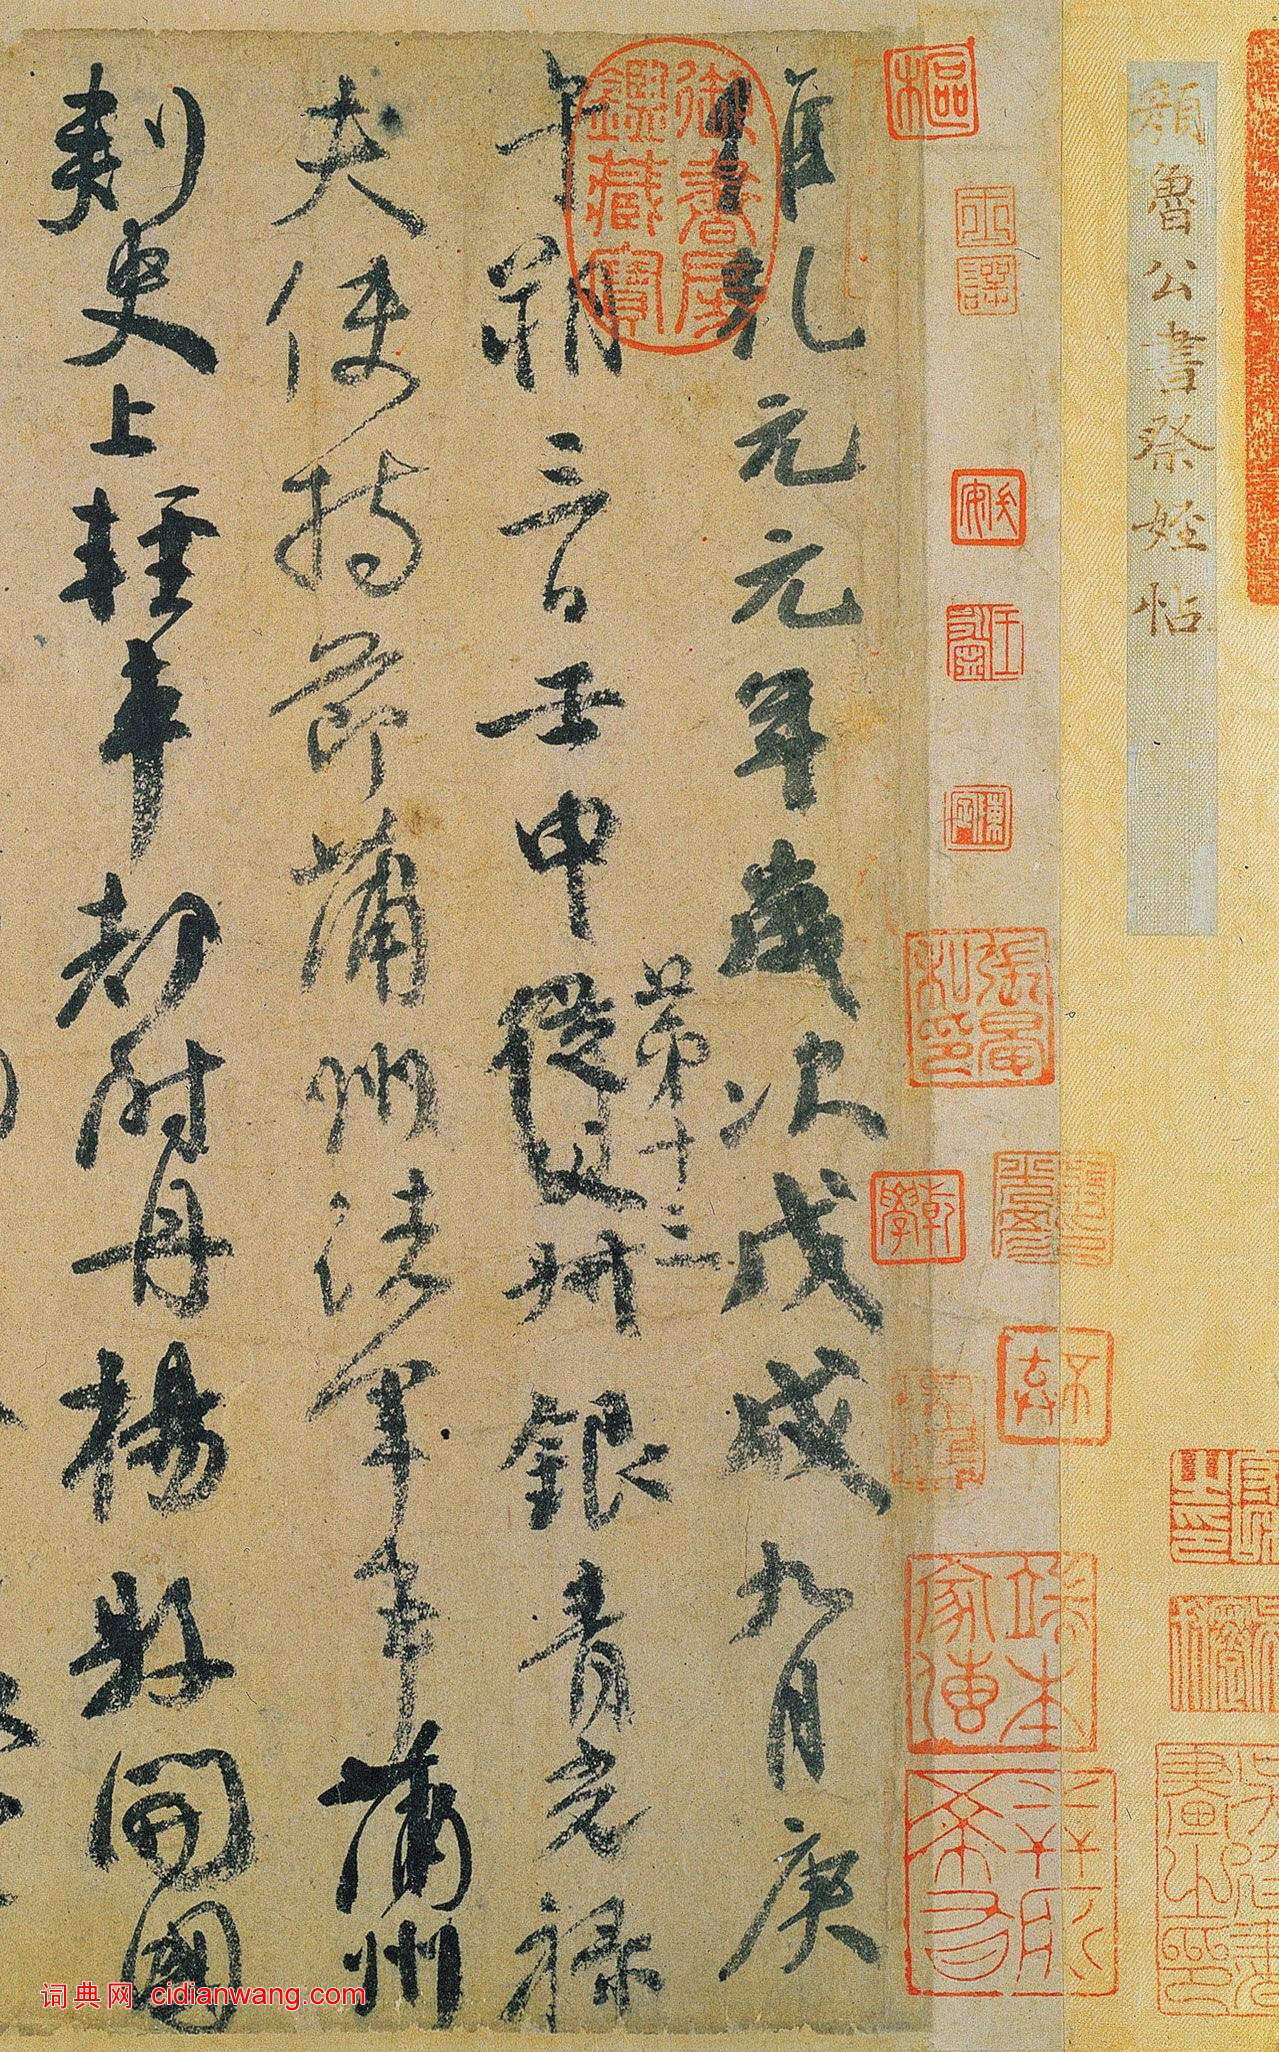 顏魯公書祭姪帖
維乾元元年歲次戊戌九月庚
午朔三日壬申第十三從父叔銀青光禄
夫使持節蒲州諸軍事蒲州
刺史上輕車都尉丹楊縣開國
御書房鑑藏寶
樞
張晏私印
乾
學
詞典网 cidianwang.com